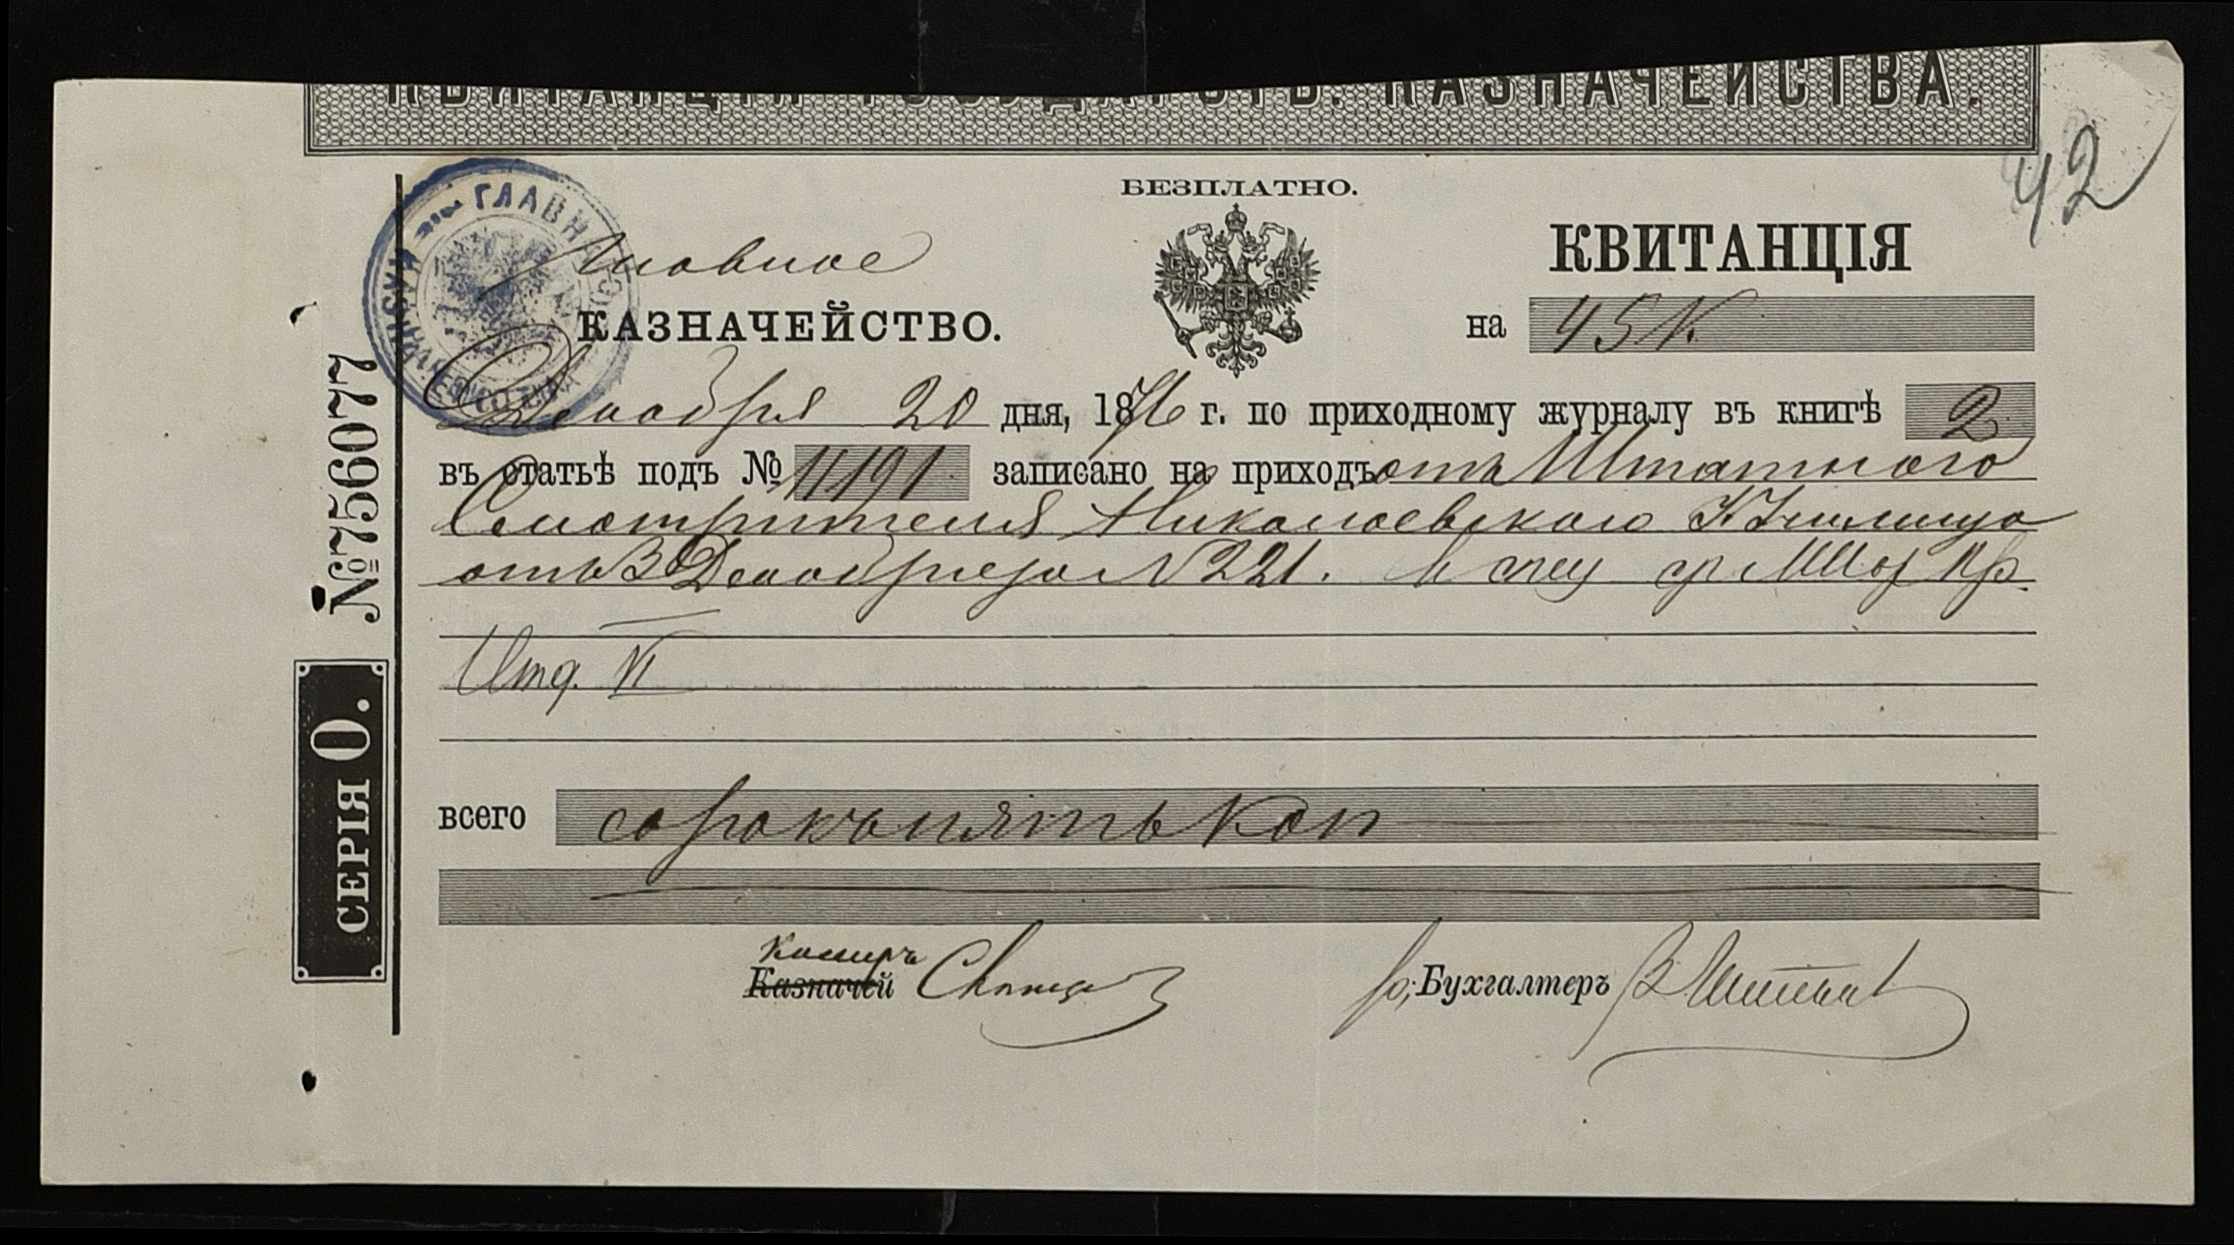 КВИТАНЦІЯ ГОСУДАРСТВ. КАЗНАЧЕЙСТВА.
42
БЕЗПЛАТНО.
Главное
КАЗНАЧЕЙСТВО.
КВИТАНЦІЯ
на 45 к
Декабря 20 дня, 1876 г. по приходному журналу въ книгѣ 2
въ статьѣ подъ № 11191 записано на приходъ отъ Штатного
Смотрителя Николаевского Училища
отъ 3 Декабря за № 221. в спец ср
Отд. VI
всего сорокъ пять коп
Кассиръ
Казначей
Бухгалтеръ
№756077
СЕРІЯ О.
ГЛАВН